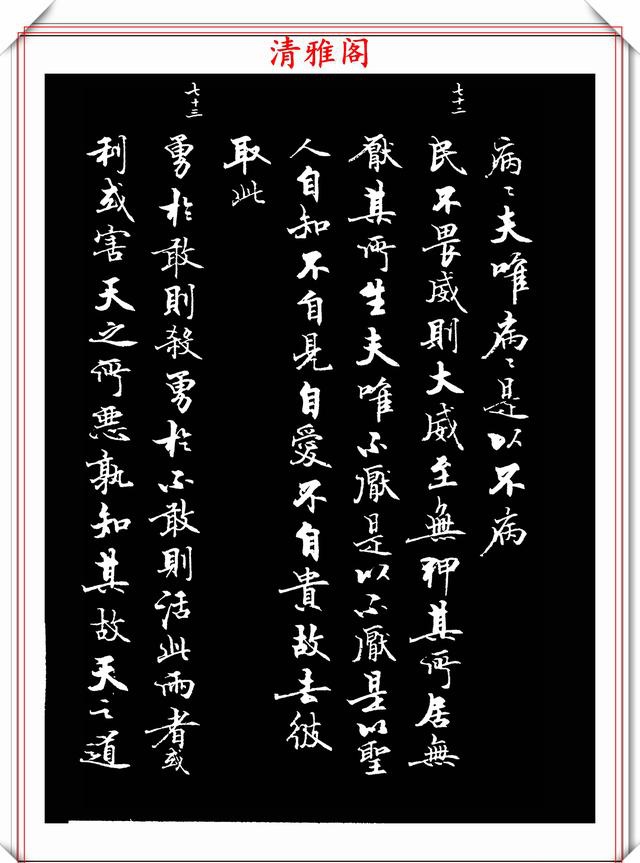 清雅阁
病〻夫唯病〻是以不病
七十二
民不畏威則大威至無狎其所居無
厭其所生夫唯不厭是以不厭是以聖
人自知不自見自愛不自貴故去彼
取此
七十三
勇於敢則殺勇於不敢則活此兩者或
利或害天之所惡孰知其故天之道